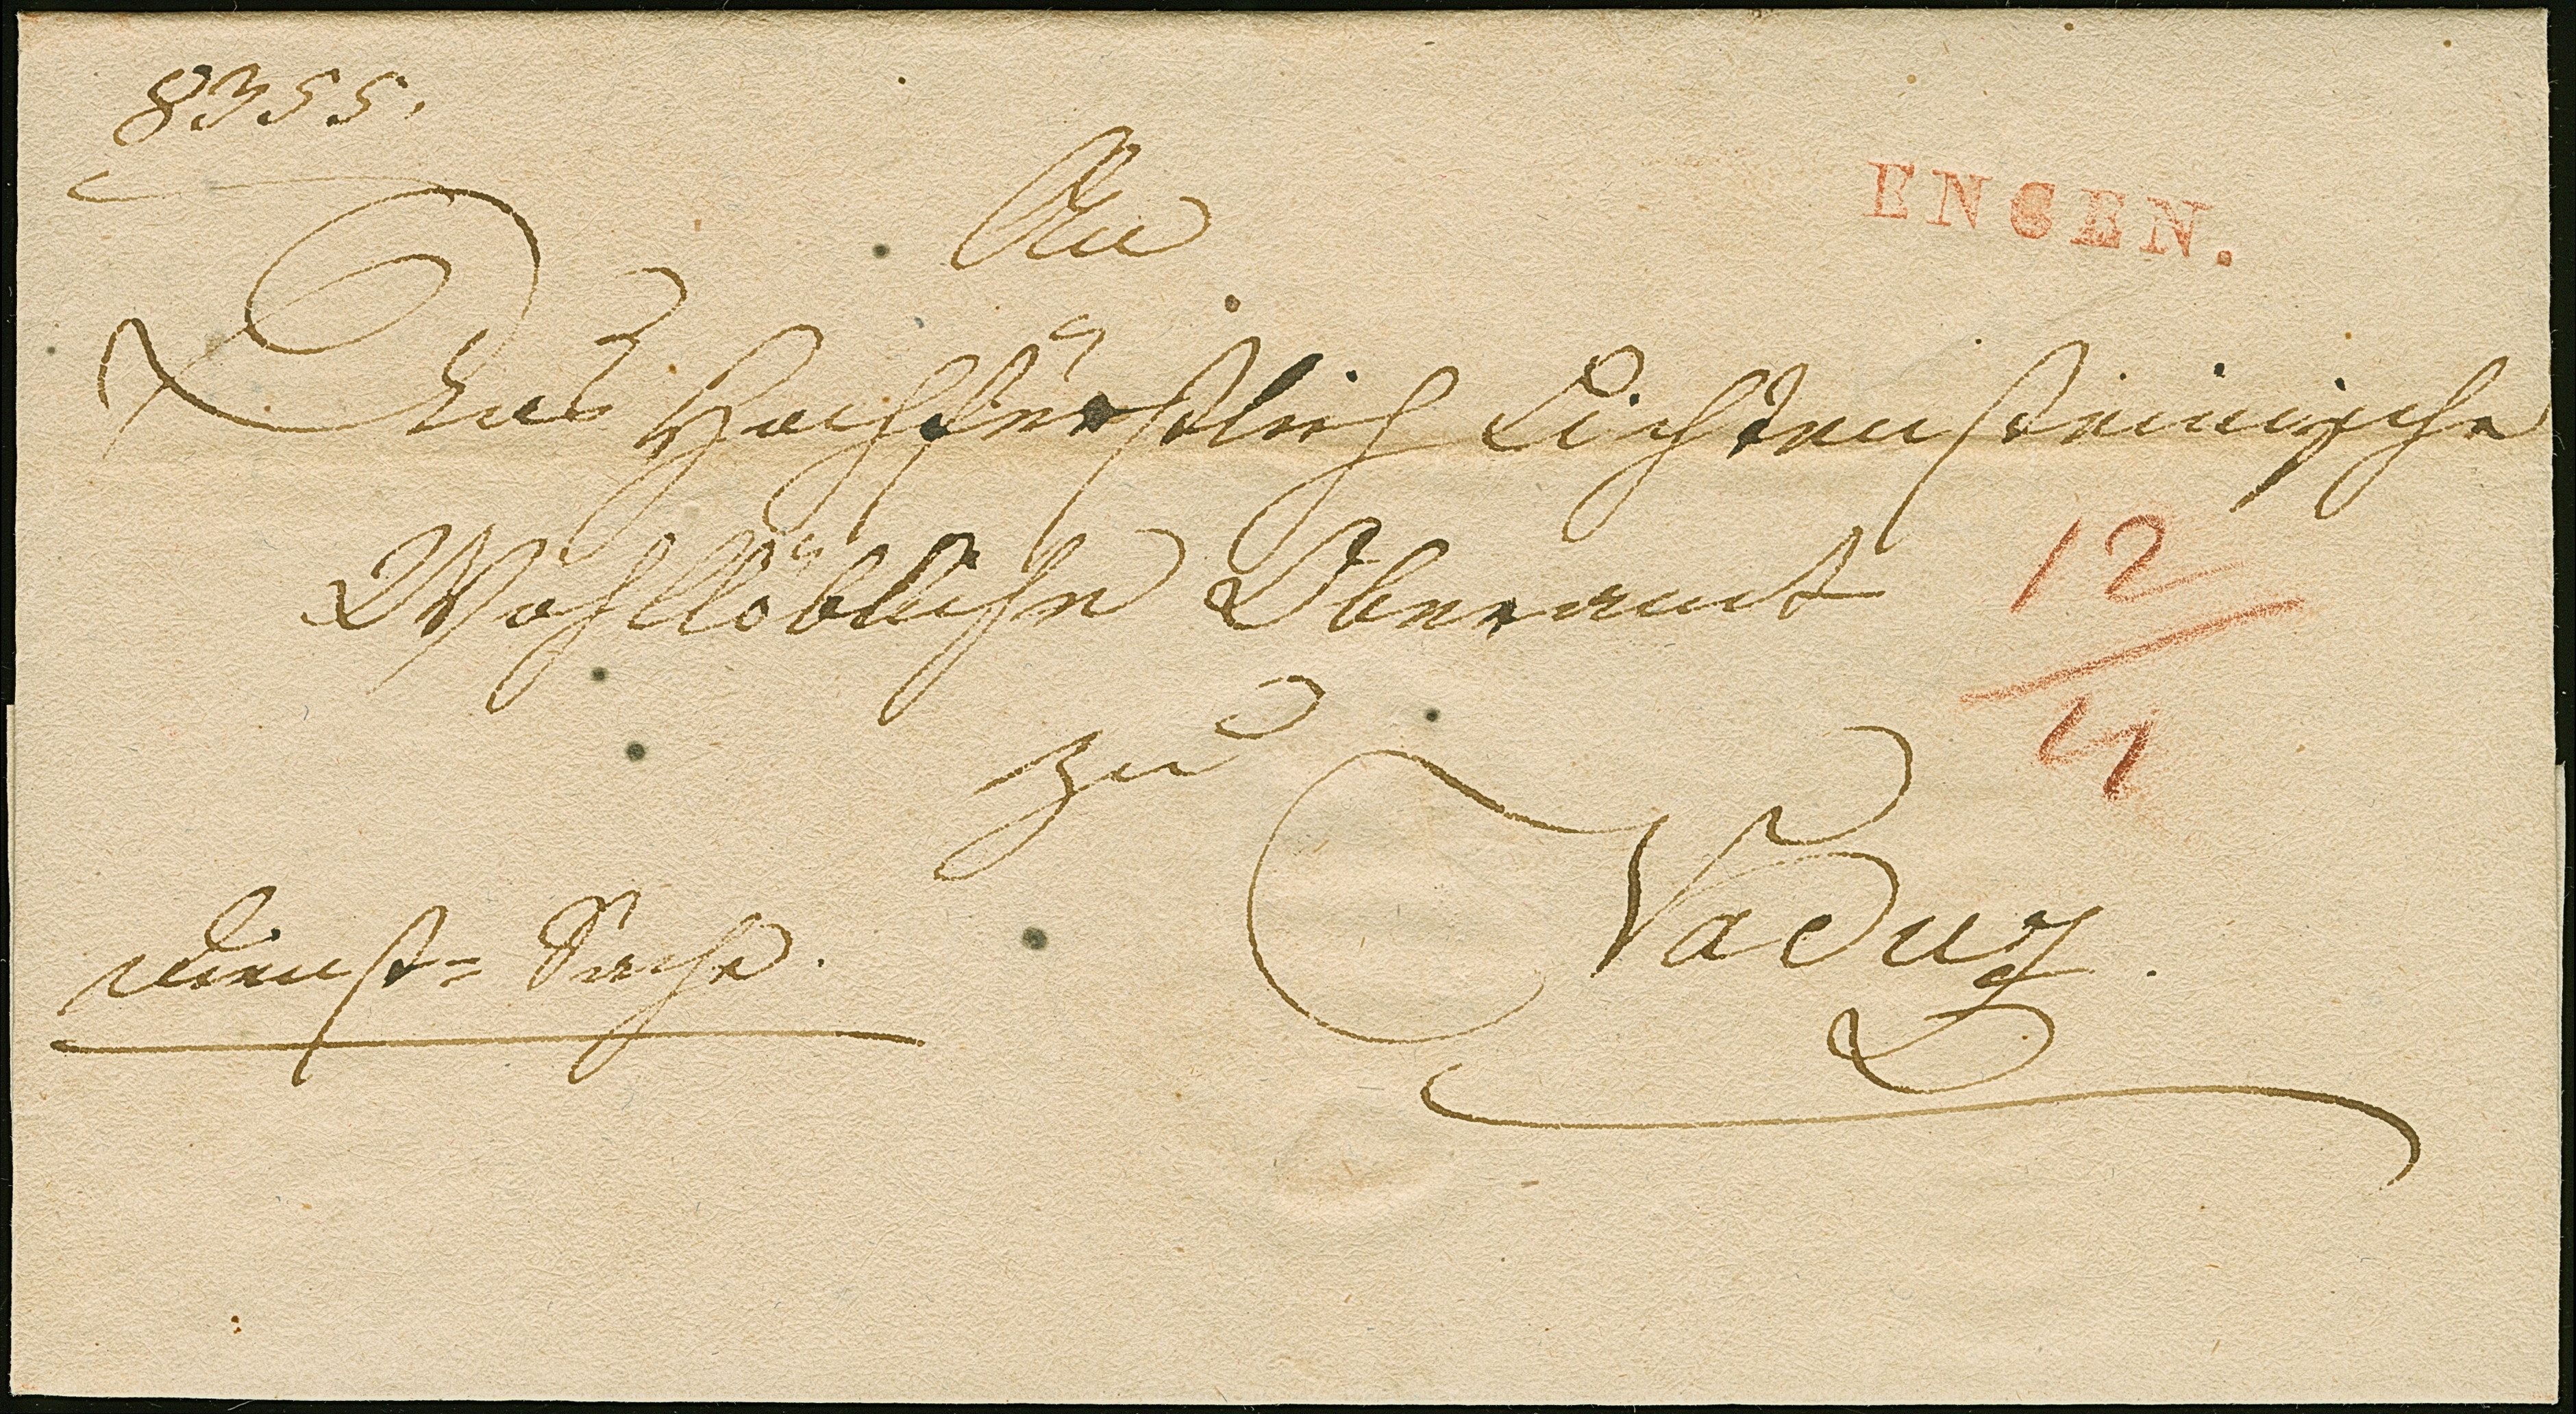 8355.
An
ENGEN.
Das Hochfürstlich Lichtensteinische
Wohllöbliche Oberamt
12
4
zu
Vaduz.
Dienst=Sache.